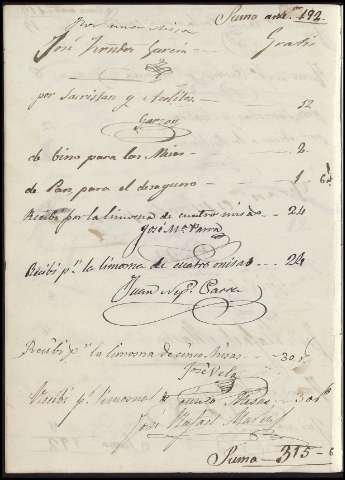 Suma antr. 192.
Por una Misa
José Gratis
por Sacristan y Acolitos — 12
Garzon
de bino para las Misas — 2.
de Pan para el desayuno — 1 - 6
Recibi por la limosna de cuatro misas — 24
José Ma. Parra
Recibi pr. la limosna de cuatro misas — 24
Juan Nepo. Parra
Recibi pr. la limosna de cinco Misas — 30 r.
José Vela
Recibi pr. limosna de Misas — 30 r.
José Rafael
Suma — 315 - 6